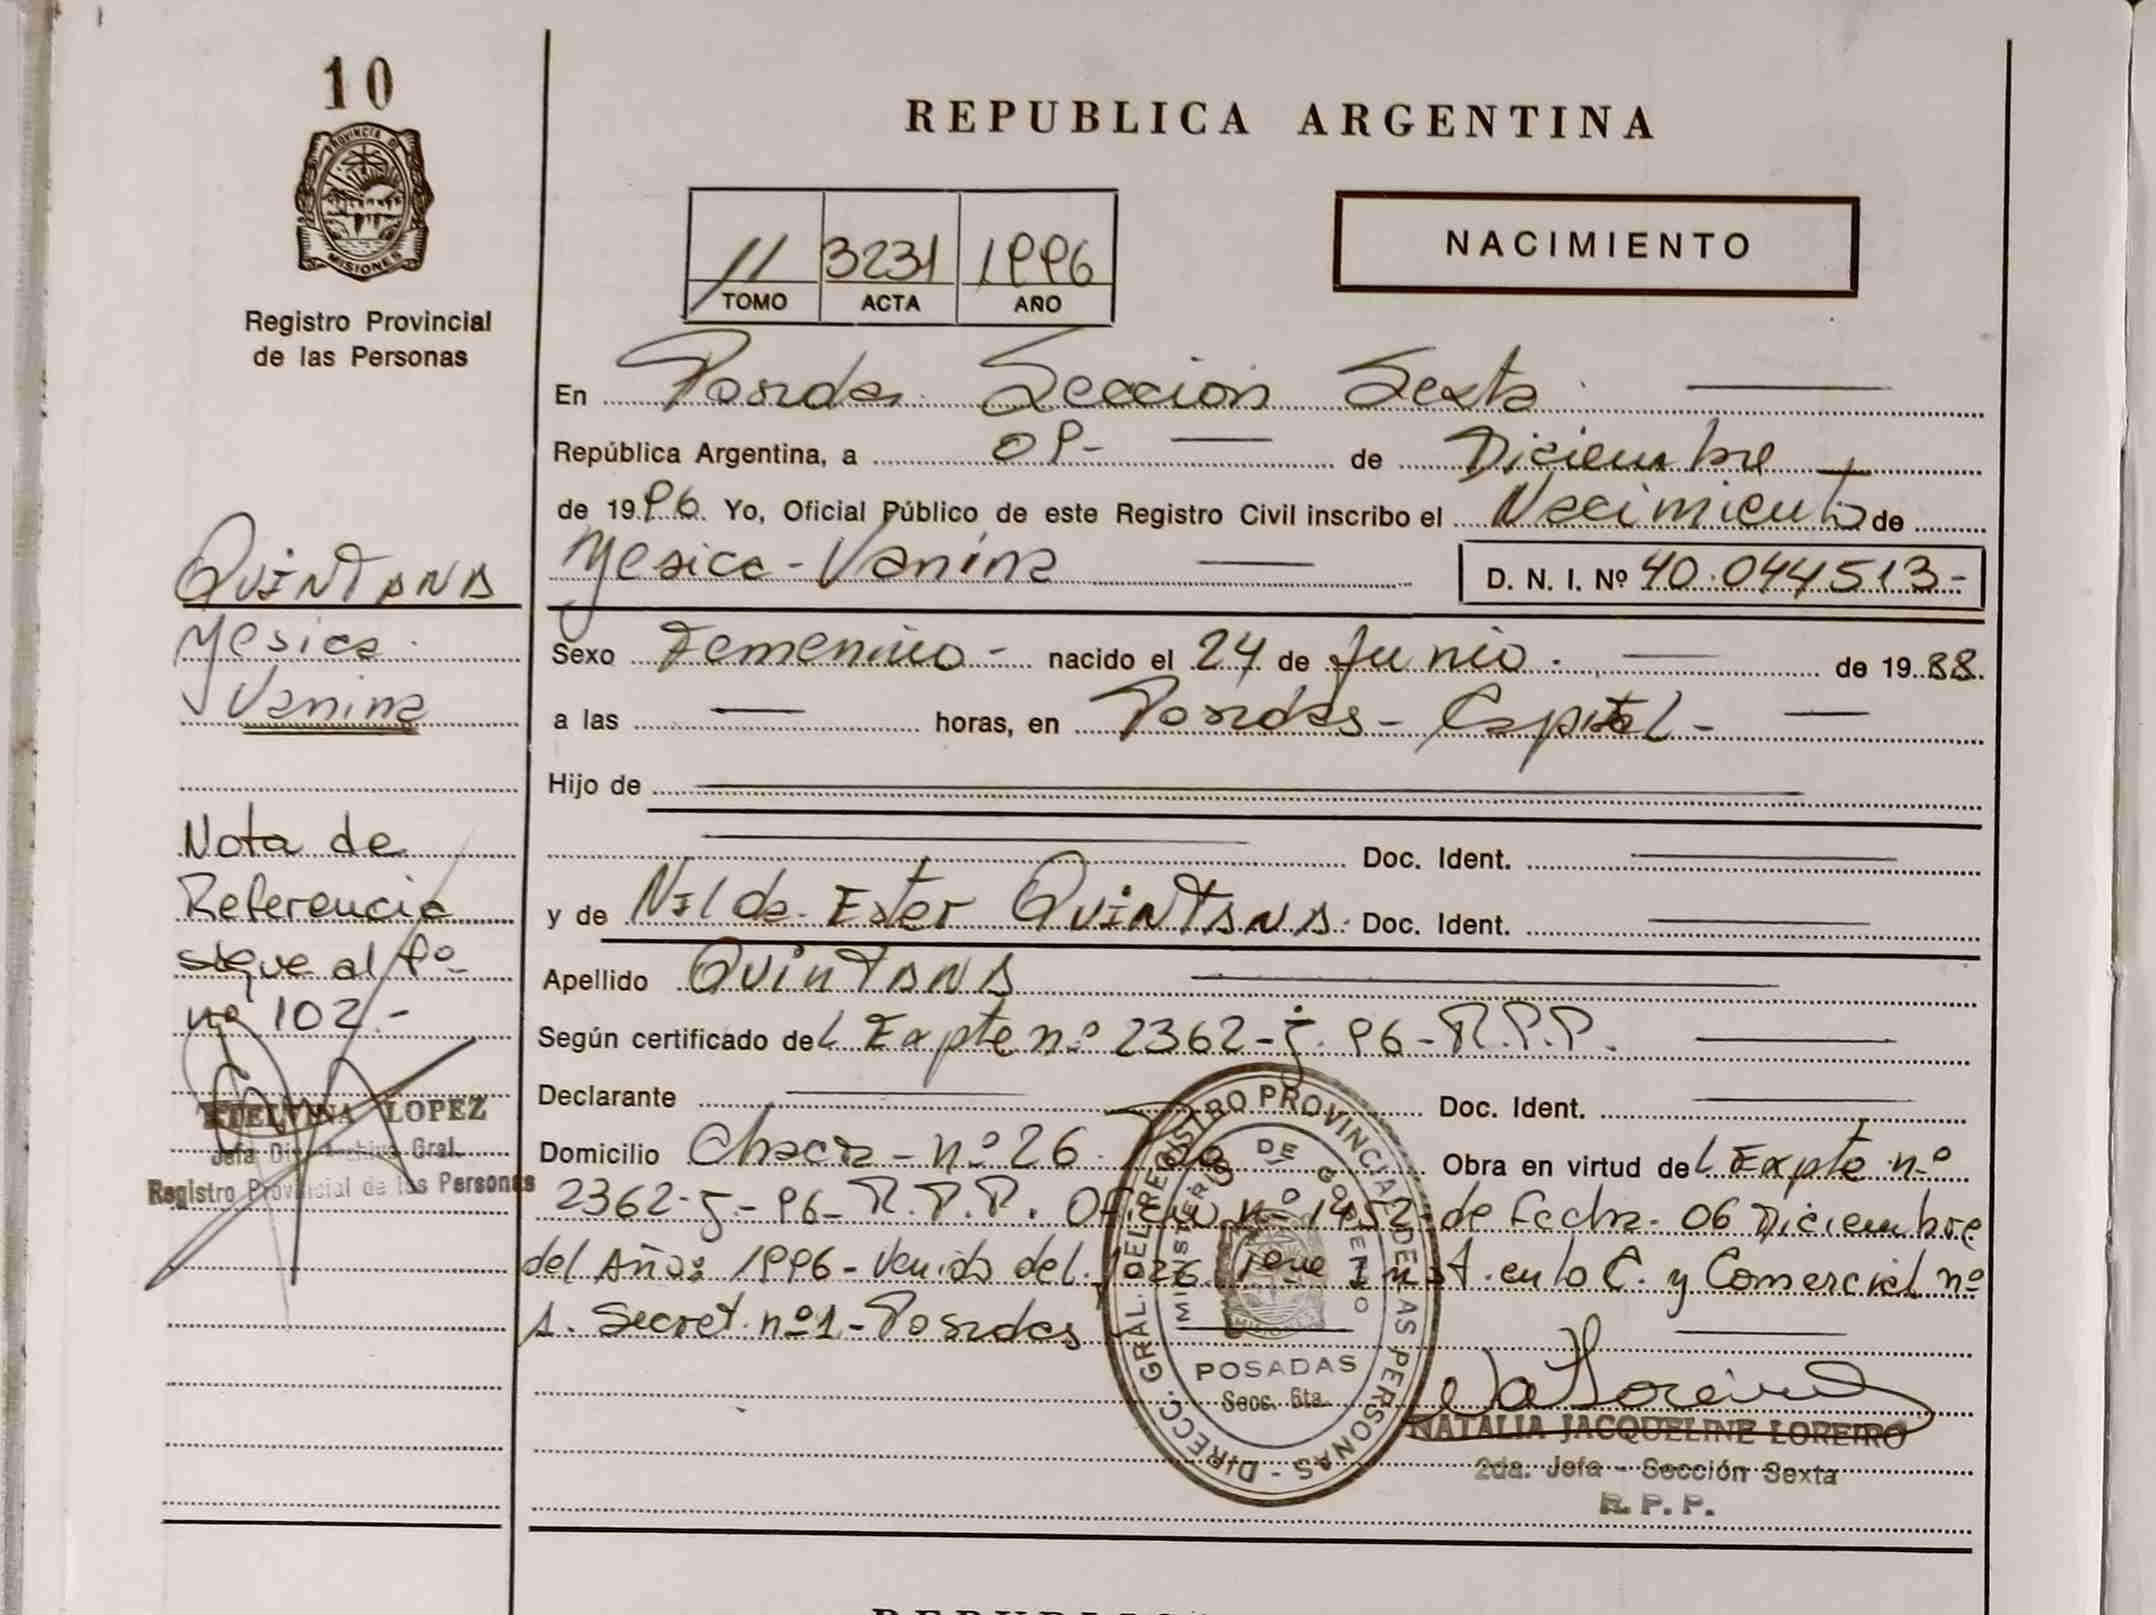 10
PROVINCIA DE
MISIONES
Registro Provincial
de las Personas
REPUBLICA ARGENTINA
11 3231 1996
TOMO ACTA AÑO
NACIMIENTO
En Posadas Sección Sexta
República Argentina, a 09- de Diciembre
de 1996. Yo, Oficial Público de este Registro Civil inscribo el Nacimiento de
Yesica-Vanina D. N. I. Nº 40.044513-
Sexo Femenino- nacido el 24 de Junio. de 1988.
a las horas, en Posadas- Capital-
Hijo de
Doc. Ident.
y de Nilda Ester QuinTANA. Doc. Ident.
Apellido QuinTANA
Según certificado del Expte nº 2362-j-96-R.P.P.
Declarante Doc. Ident.
Domicilio Chacra-nº 26 Obra en virtud del Expte nº
2362-j-96-R.P.P. Oficio nº 1452 de fecha 06 Diciembre
del Año: 1996- Venido del Juzg 1ero Inst. en lo C. y Comercial nº
1. Secret. nº1-Posadas
QUINTANA
Yesica
Vanina
Nota de
Referencia
sigue al fº
nº 102.-
LOPEZ
Jefa Archivo Gral.
Registro Provincial de las Personas
DIRECC. GRAL. DEL REGISTRO PROVINCIAL DE LAS PERSONAS -
MINISTERIO DE GOBIERNO
MISIONES
POSADAS
Secc. 6ta.
NATALIA JACQUELINE LOREIRO
2da. Jefa - Sección Sexta
R. P. P.